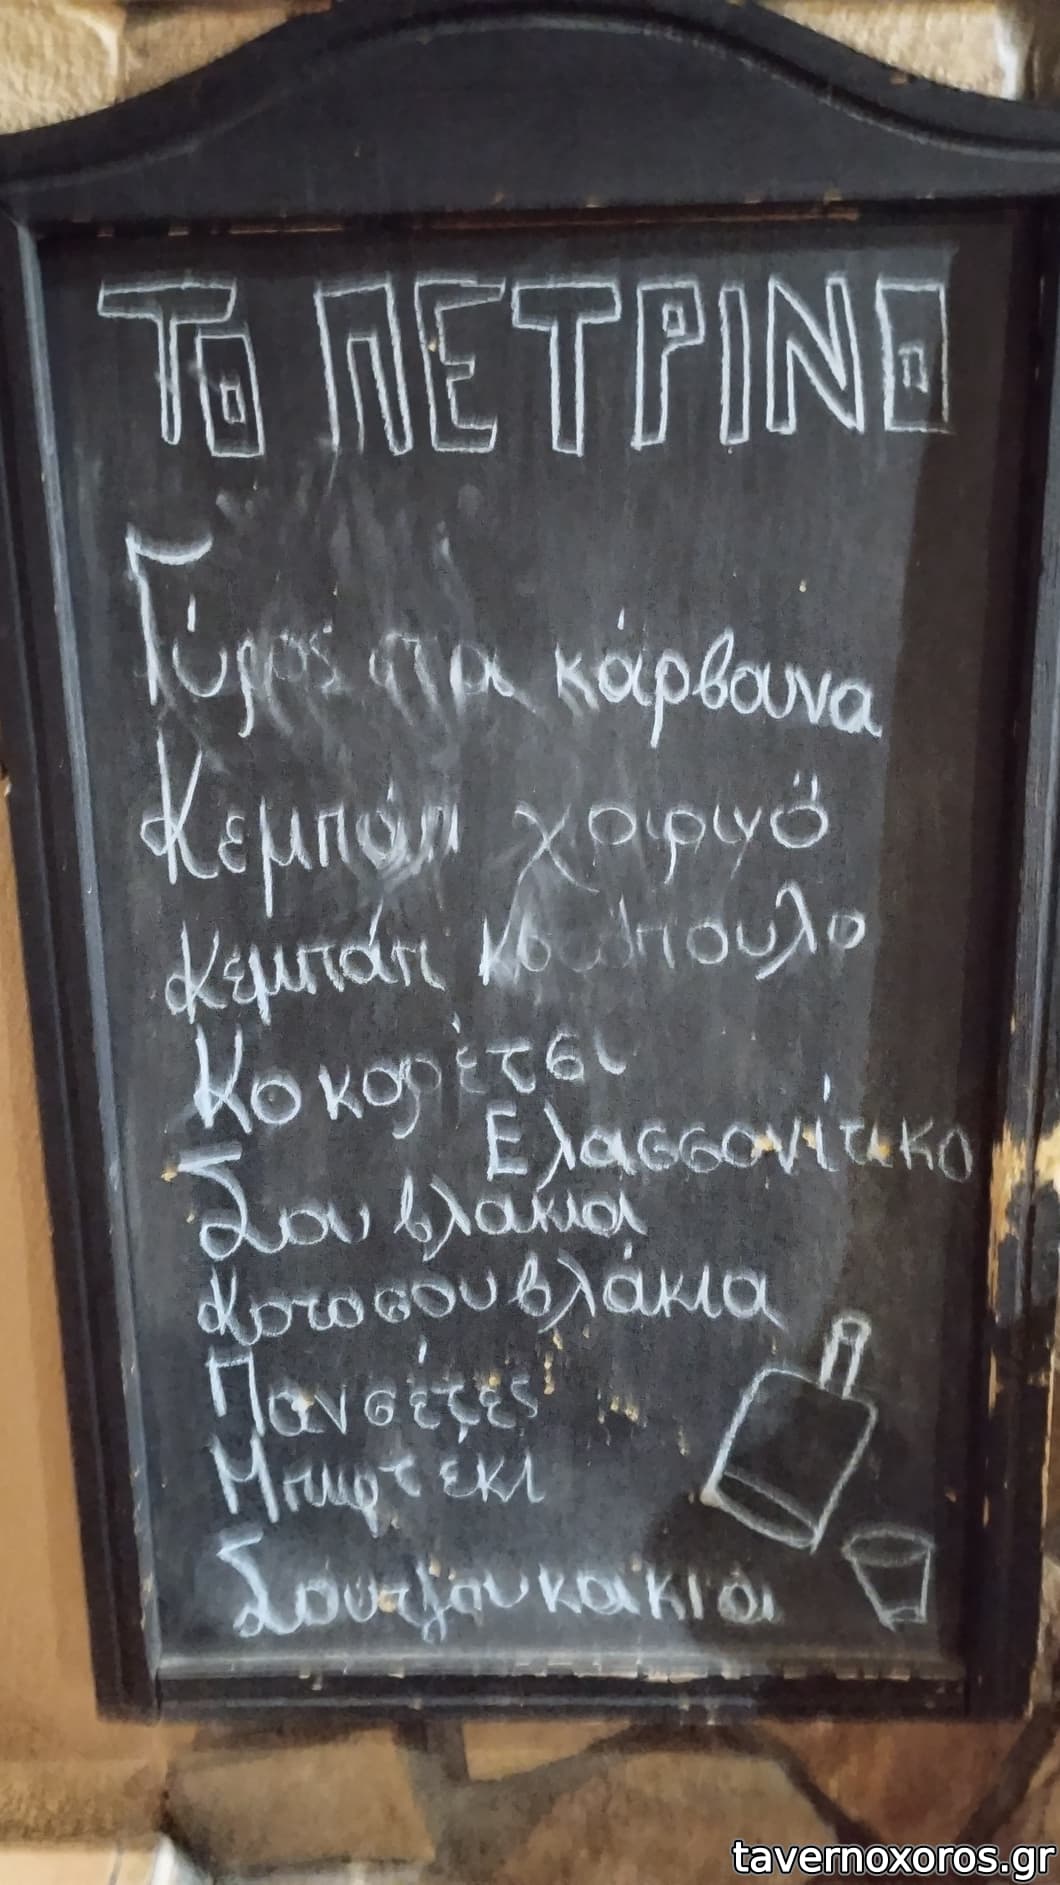 ΤΟ ΠΕΤΡΙΝΟ
Γύρος στα κάρβουνα
Κεμπάπ χοιρινό
Κεμπάπ κοτόπουλο
Κοκορέτσι
Ελασσονίτικο
Σουβλακια
Κοτοσουβλάκια
Πανσέτες
Μπιφτεκι
Σουτζουκακια
tavernoxoros.gr